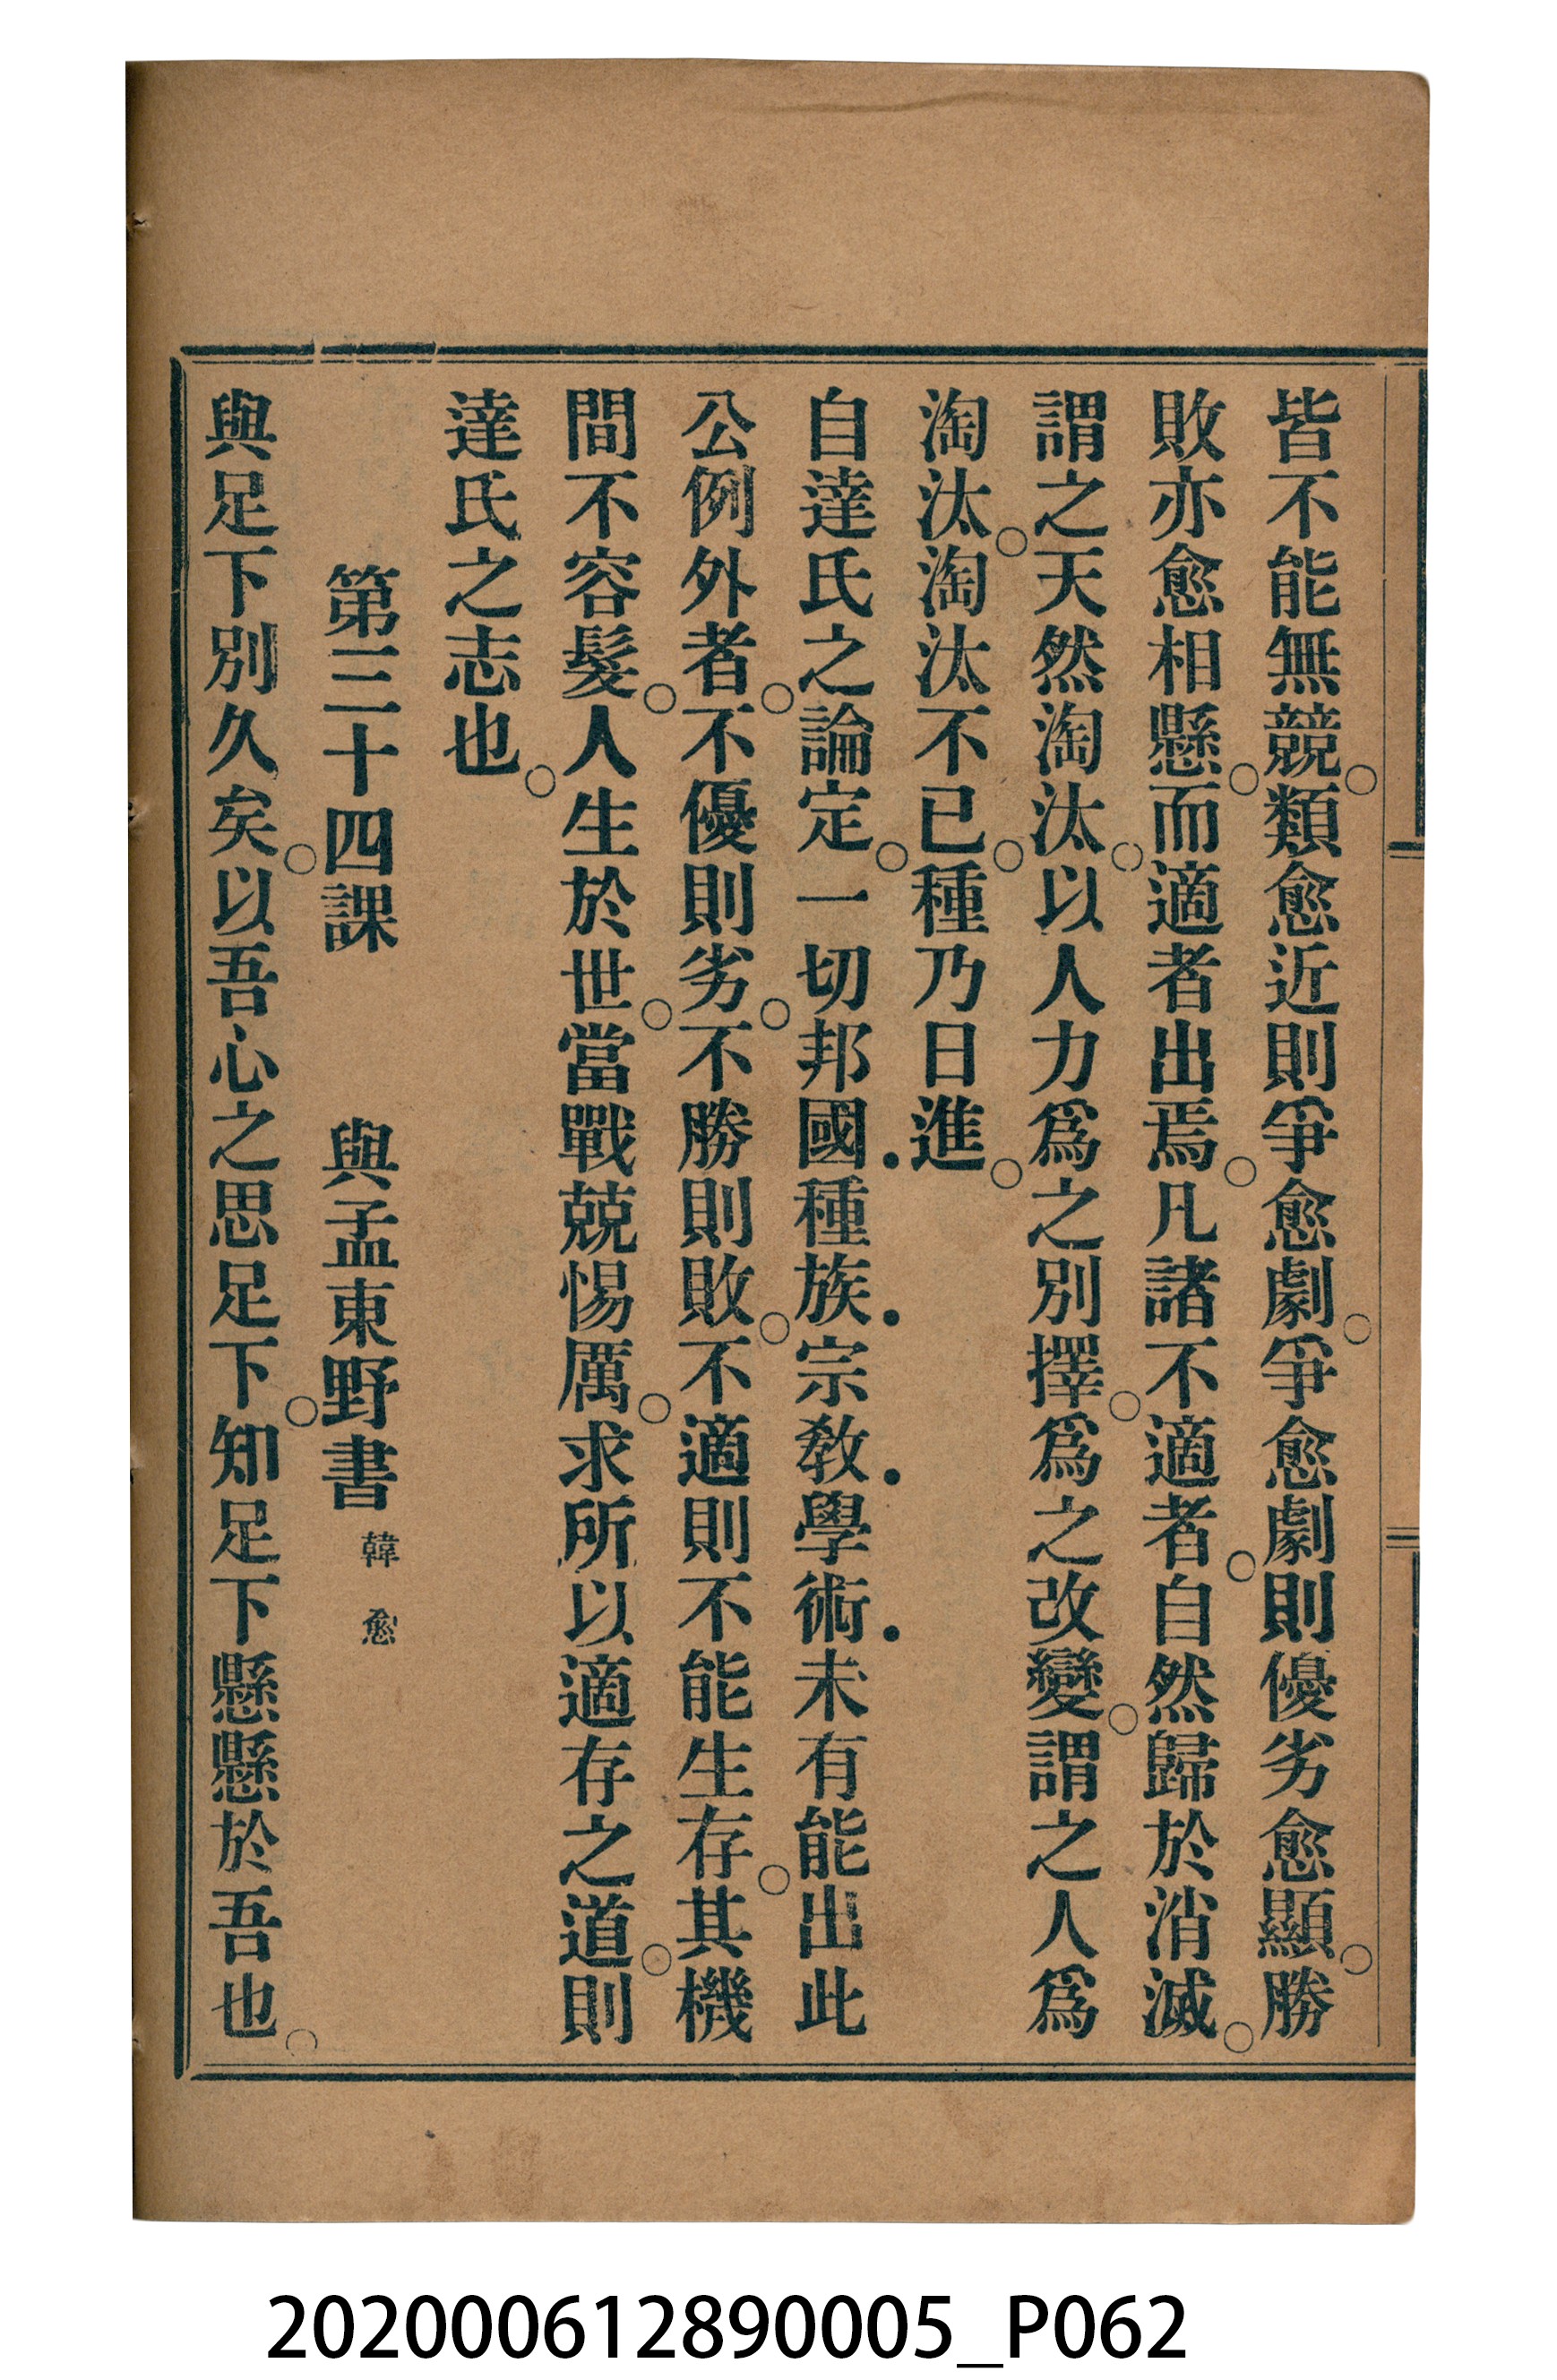 皆不能無競。類愈近則爭愈劇。爭愈劇則優劣愈顯。勝
敗亦愈相懸。而適者出焉。凡諸不適者。自然歸於消滅。
謂之天然淘汰。以人力爲之別擇。爲之改變。謂之人爲
淘汰。淘汰不已。種乃日進。
自達氏之論定。一切邦國．種族．宗教．學術．未有能出此
公例外者。不優則劣。不勝則敗。不適則不能生存。其機
間不容髮。人生於世。當戰兢惕厲。求所以適存之道。則
達氏之志也。
第三十四課　與孟東野書　韓愈
與足下別久矣。以吾心之思足下。知足下懸懸於吾也。
202000612890005_P062